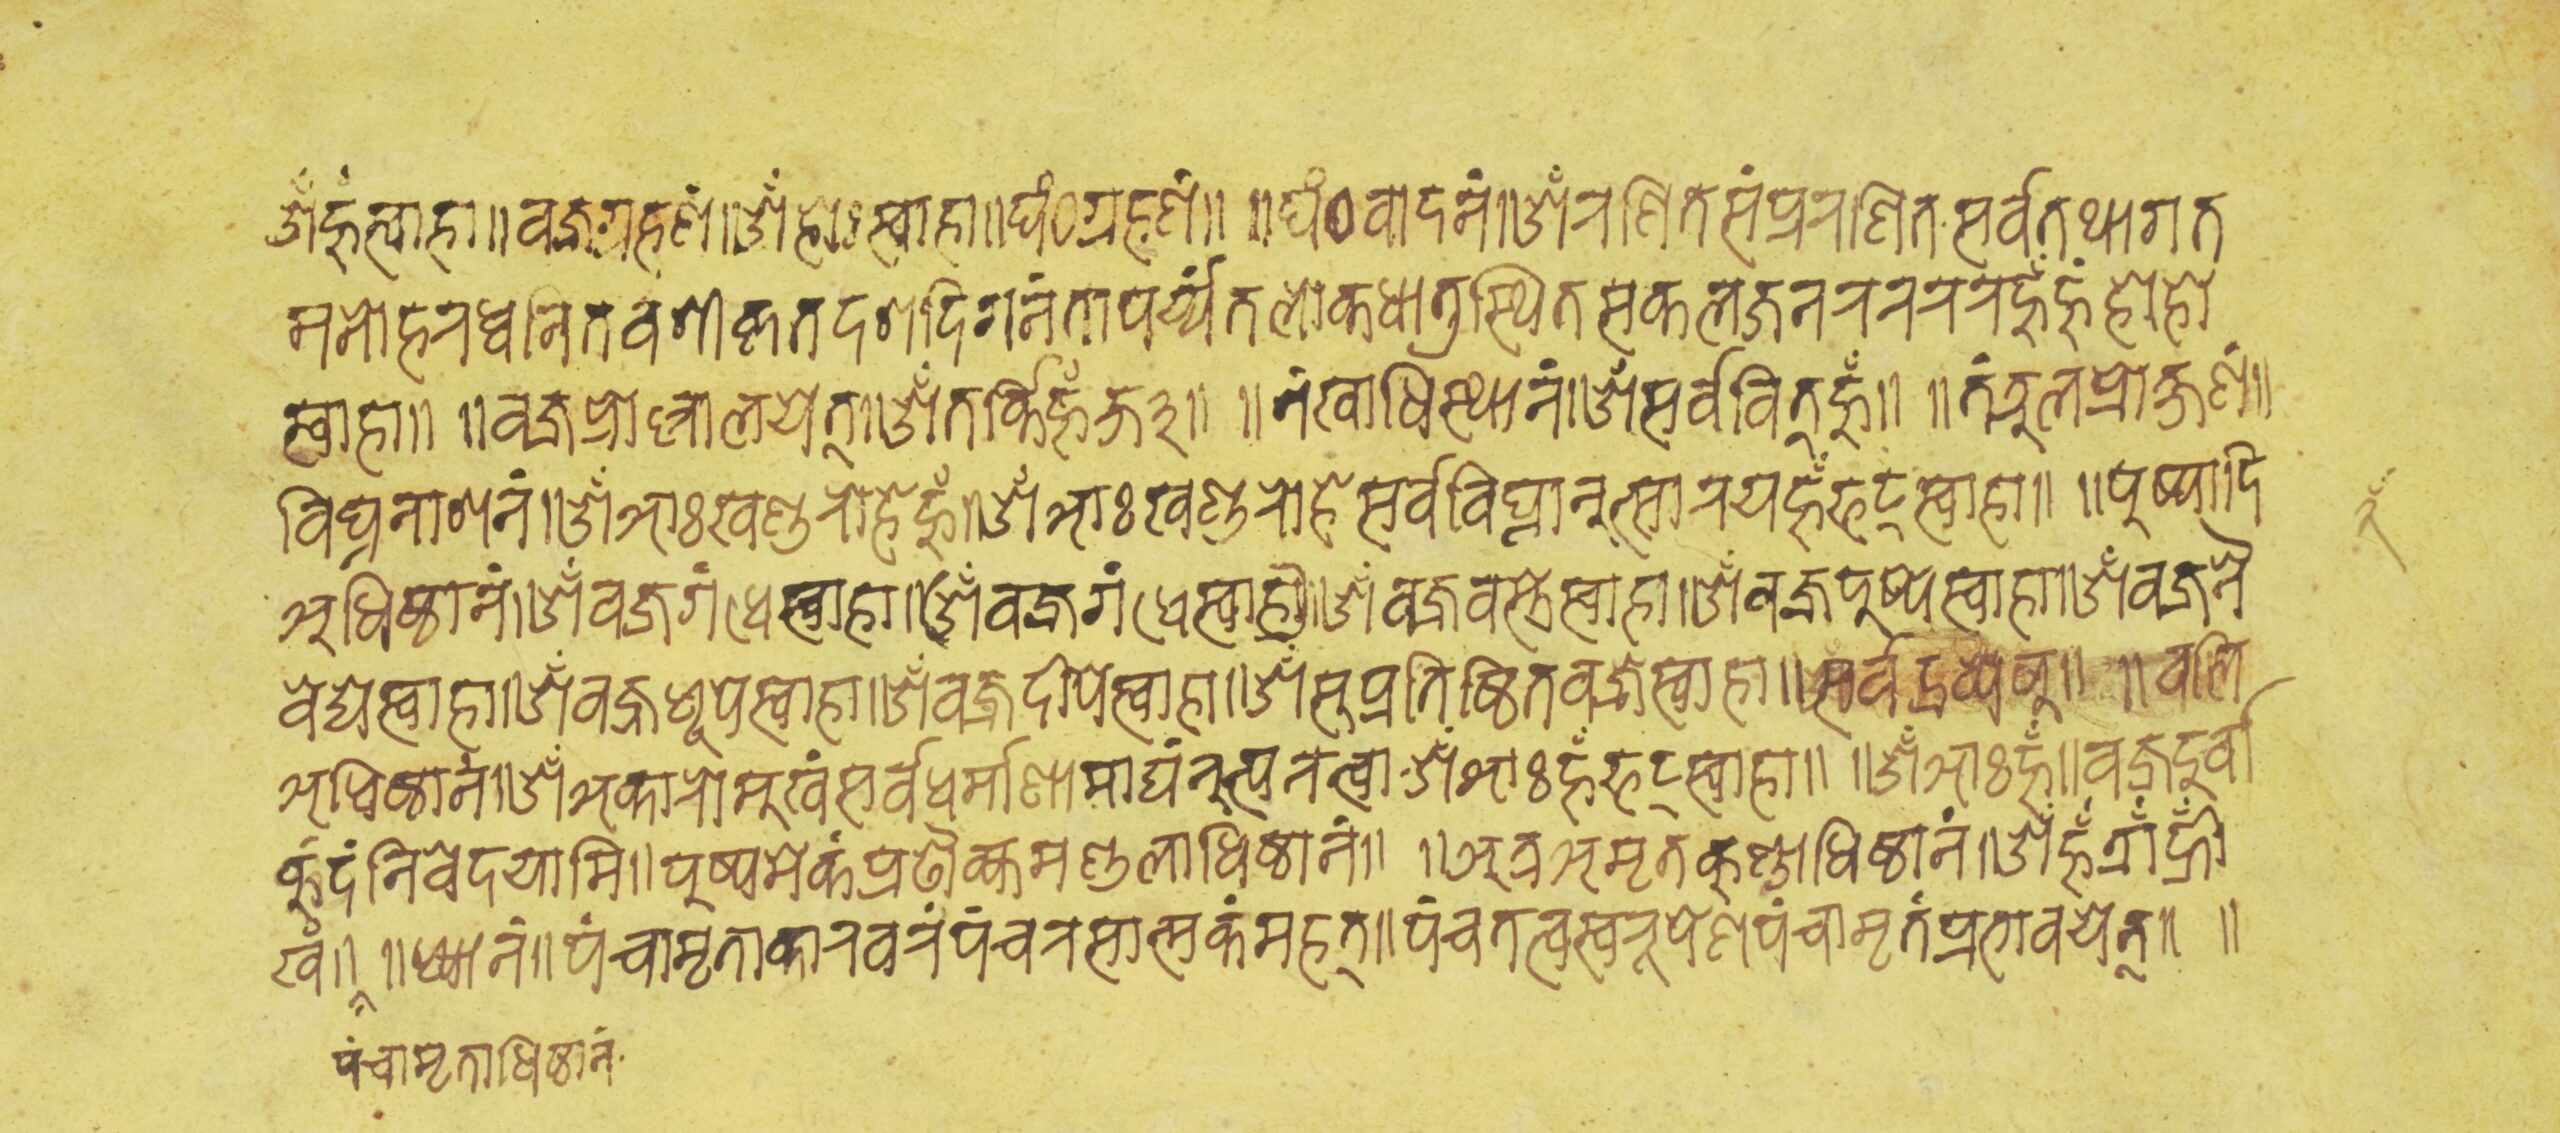 ॐ हूँ स्वाहा॥ वज्रग्रहणं॥ ॐ होः स्वाहा॥ घं०ग्रहणं॥ ॥घं०वादनं॥ ॐ रणित संप्ररणित सर्वतथागत
मनोहरध्वनित वशीकृत दशदिगनंतापर्य्यंत लोकधातुस्थित सकलजन र र र र हूँ हूँ हो हो
स्वाहा॥ ॥वज्रप्रोल्लालयेत्॥ ॐ तर्कि हूँ जः३॥ ॥नंखाधिस्थानं॥ ॐ सर्ववित् हूँ॥ ॥तंदुलप्रोक्षणं॥
विघ्ननाशनं॥ ॐ आः खण्डरोहे हूँ॥ ॐ आः खण्डरोहे सर्वविघ्नानुत्सारय हूँ फट् स्वाहा॥ ॥पुष्पादि
अधिष्ठानं॥ ॐ वज्रगंधे स्वाहा॥ (ॐ वज्रगंधे स्वाहा)॥ ॐ वज्रवस्त्रे स्वाहा॥ ॐ वज्रपुष्पे स्वाहा॥ ॐ वज्रनै
वेद्ये स्वाहा॥ ॐ वज्रधूपे स्वाहा॥ ॐ वज्रदीपे स्वाहा॥ ॐ सुप्रतिष्ठितवज्रे स्वाहा॥ सर्वद्रव्यषु॥ ॥बलि
अधिष्ठानं॥ ॐ अकारोमुखं सर्वधर्माणामाद्यंनुत्पनत्वा ॐ आः हूँ फट् स्वाहा॥ ॥ॐ आः हूँ॥ वज्रदुर्वा
कुंदं निवेदयामि॥ पुष्पमेकं प्रढौक्य मण्डलाधिष्ठानं॥ ॥अत्र अमृतकुण्डाधिष्ठानं॥ ॐ हूँ त्राँ ह्रीँ
खँ॥ ॥ध्यानं॥ पंचामृताकारवरं पंचरसात्मकं महत्॥ पंचतत्वस्वरूपेण पंचामृतं प्रभावयेत्॥ ॥
पंचामृताधिष्ठानं